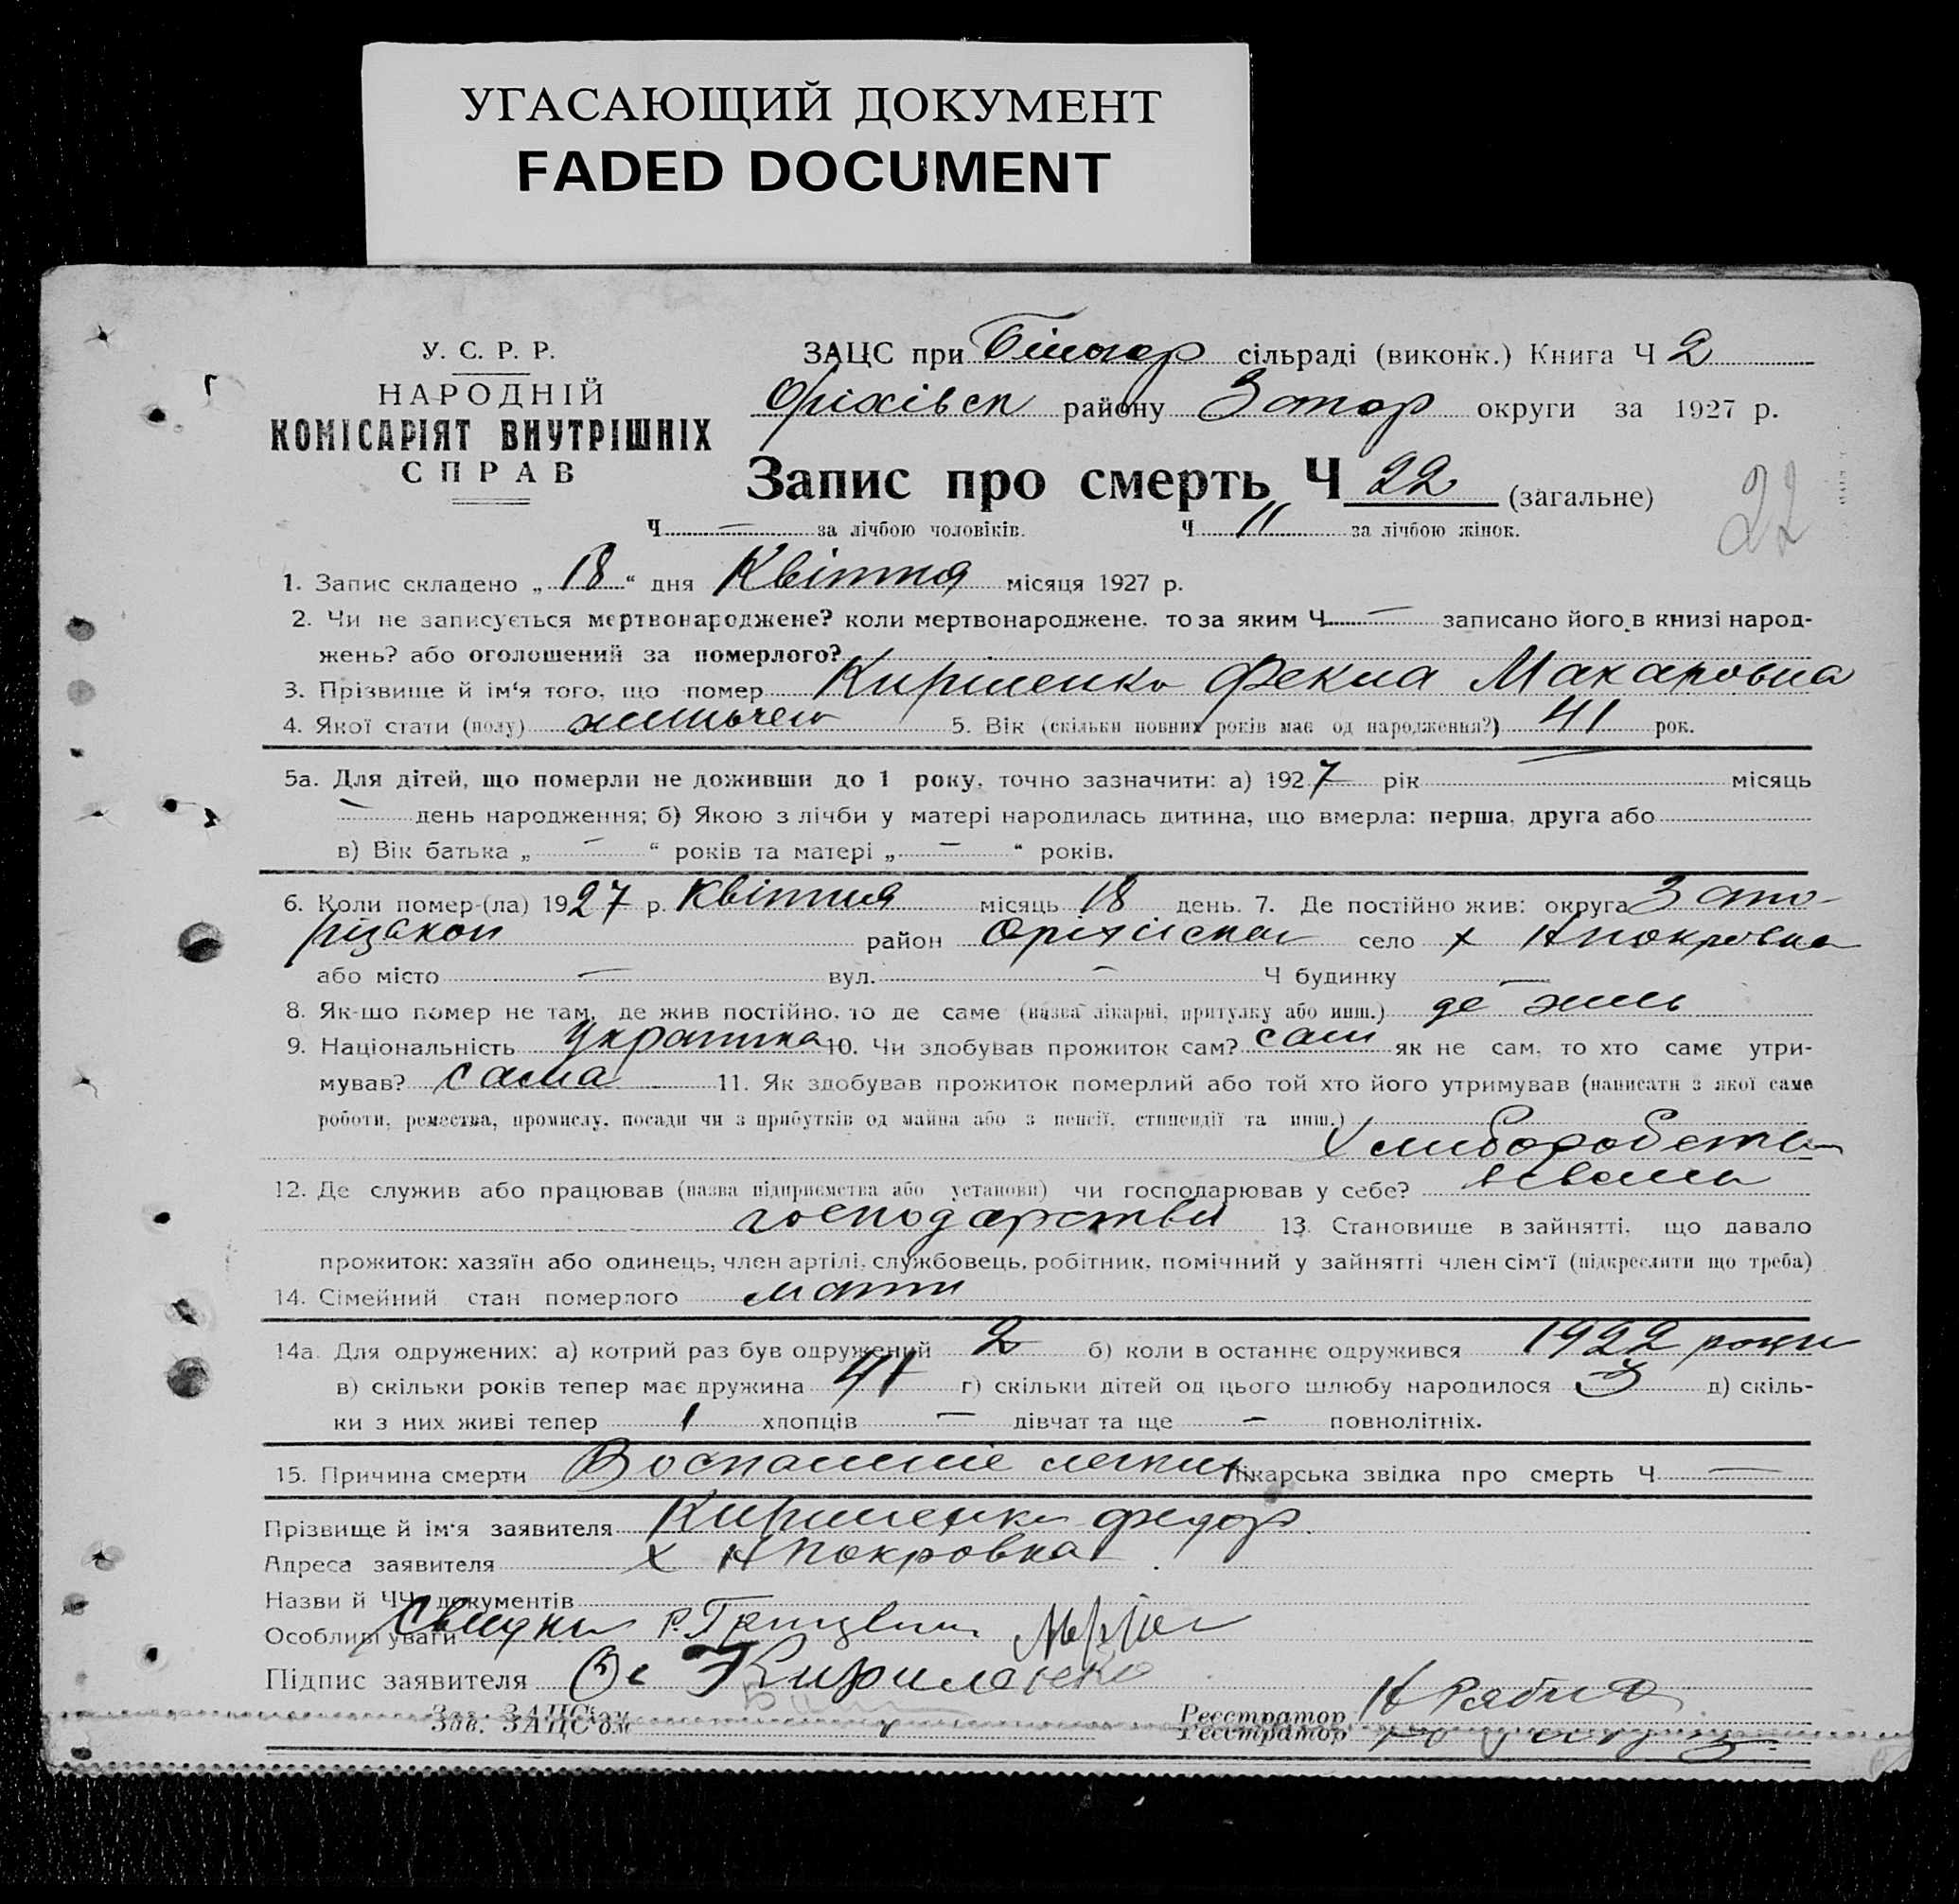 УГАСАЮЩИЙ ДОКУМЕНТ
FADED DOCUMENT
У. С. Р. Р.
НАРОДНІЙ
КОМІСАРІЯТ ВНУТРІШНІХ
СПРАВ
ЗАЦС при Білогор сільраді (виконк.) Книга Ч 2
Оріхівськ району Запор округи за 1927 р.
Запис про смерть Ч 22 (загальне)
22
Ч — за лічбою чоловіків. Ч 11 за лічбою жінок.
1. Запис складено „ 18 “ дня Квітня місяця 1927 р.
2. Чи не записується мертвонароджене? коли мертвонароджене, то за яким Ч — записано його в книзі народ-
жень? або оголошений за померлого?
3. Прізвище й ім‘я того, що помер Кириленко Фекла Макаровна
4. Якої стати (полу) 5. Вік (скільки повних років має од народження?) 41 рок.
5а. Для дітей, що померли не доживши до 1 року, точно зазначити: а) 1927 рік — місяць
— день народження; б) Якою з лічби у матері народилась дитина, що вмерла: перша, друга або
в) Вік батька „ — “ років та матері „ — “ років.
6. Коли помер-(ла) 1927 р. Квітня місяць 18 день. 7. Де постійно жив: округа Запо-
різькой район село х Н покровка
або місто — вул. — Ч будинку —
8. Як-що помер не там, де жив постійно, то де саме (назва лікарні, притулку або инш.) де жиль
9. Національність Українка 10. Чи здобував прожиток сам? сам як не сам, то хто саме утри-
мував? сама 11. Як здобував прожиток померлий або той хто його утримував (написати з якої саме
роботи, ремества, промислу, посади чи з прибутків од майна або з пенсії, стипендії та инш.)
12. Де служив або працював (назва підприємства або установи) чи господарював у себе?
господарстви 13. Становище в зайнятті, що давало
прожиток: хазяїн або одинець, член артілі, службовець, робітник, помічний у зайнятті член сім‘ї (підкреслити що треба)
14. Сімейний стан померлого мати
14а. Для одружених: а) котрий раз був одружений 2 б) коли в останнє одружився 1922 роци
в) скільки років тепер має дружина 41 г) скільки дітей од цього шлюбу народилося 3 д) скіль-
ки з них живі тепер 1 хлопців — дівчат та ще — повнолітніх.
15. Причина смерти Воспаление легких Лікарська звідка про смерть Ч —
Прізвище й ім‘я заявителя Кириленко Федор
Адреса заявителя х Н покровка
Назви й ЧЧ документів
Особливі уваги
Підпис заявителя Кириленко
Зав. ЗАЦС‘ом Реєстратор
Зав. ЗАЦС‘ом Реєстратор